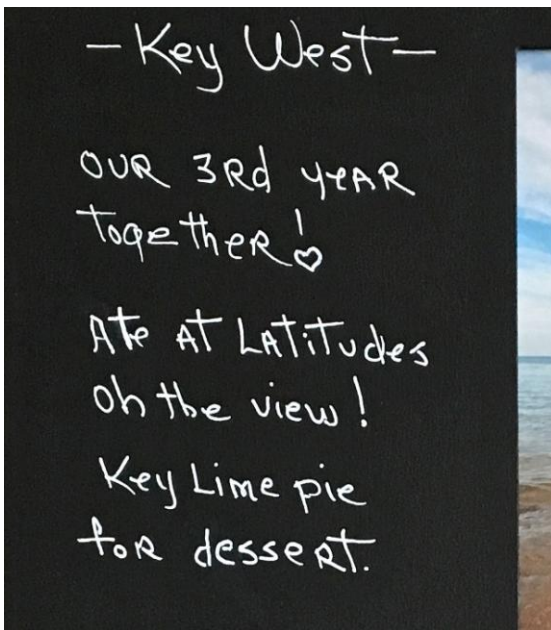 - Key West -
OUR 3Rd yeAR
TogetheR!
Ate AT LATiTudes
Oh the view!
Key Lime pie
foR desseRT.